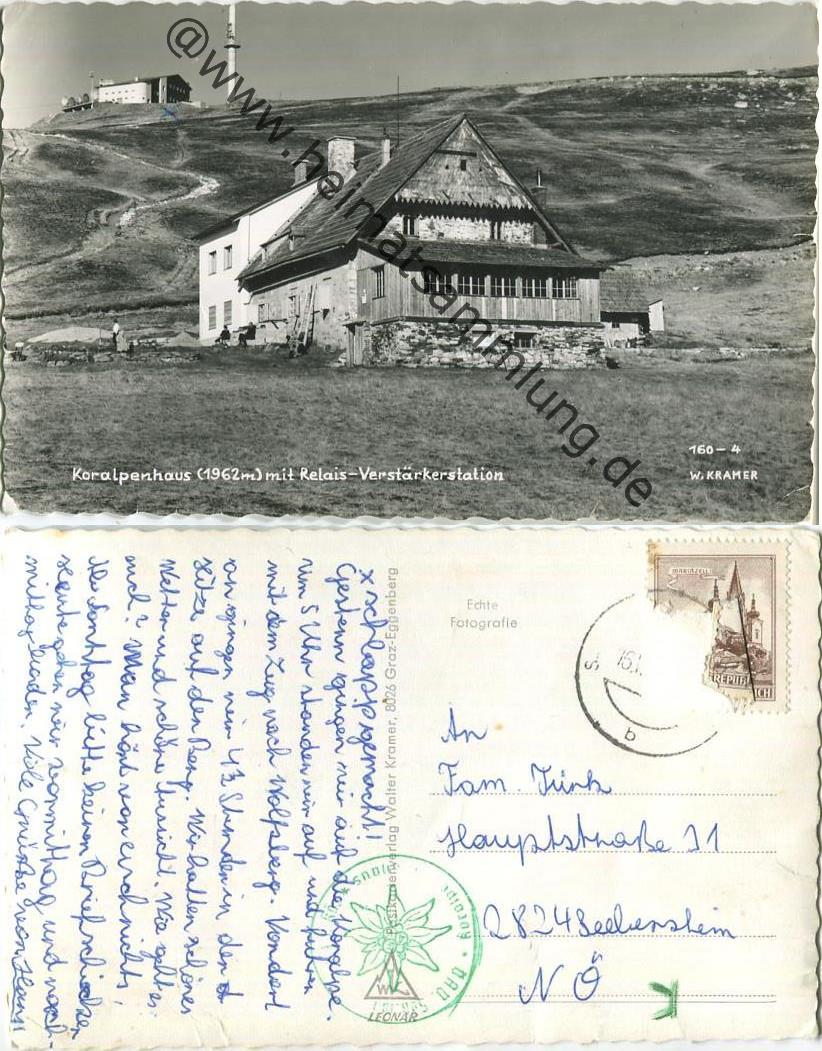 @www.heimatsammlung.de
Koralpenhaus (1962m) mit Relais-Verstärkerstation
160-4
W. KRAMER
x schlappgemacht!
Gestern gingen wir auf die Koralpe.
Um 5 Uhr standen wir auf und fuhren
mit dem Zug nach Wolfsberg. Von dort
an gingen wir 4 3 Stunden in der
Hitze auf den Berg. Wir hatten schönes
Wetter und schöne Aussicht. Wie geht es
euch? Man hört von euch nichts,
Ab Sonntag bitte keinen Brief schicken
Heute gehen wir vormittag und nach-
mittag baden. Viele Grüße von Hansi
Postkartenverlag Walter Kramer, 8026 Graz-Eggenberg
Echte
Fotografie
MARIAZELL
REPUBLIK
ICH
16.
b
An
Fam. Türk
Hauptstraße 11
2824 Seebenstein
NÖ
Koralpe
WK
LEONAR